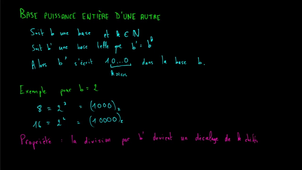 BASE PUISSANCE ENTIÈRE D'UNE AUTRE
Soit b une base et k ∈ N
Soit b' une base telle que b' = b^k
Alors b' s'écrit 10...0 dans la base b.
k zéros
Exemple pour b = 2
8 = 2³ = (1000)₂
16 = 2⁴ = (10000)₂
Propriété : la division par b' devient un décalage de k digits